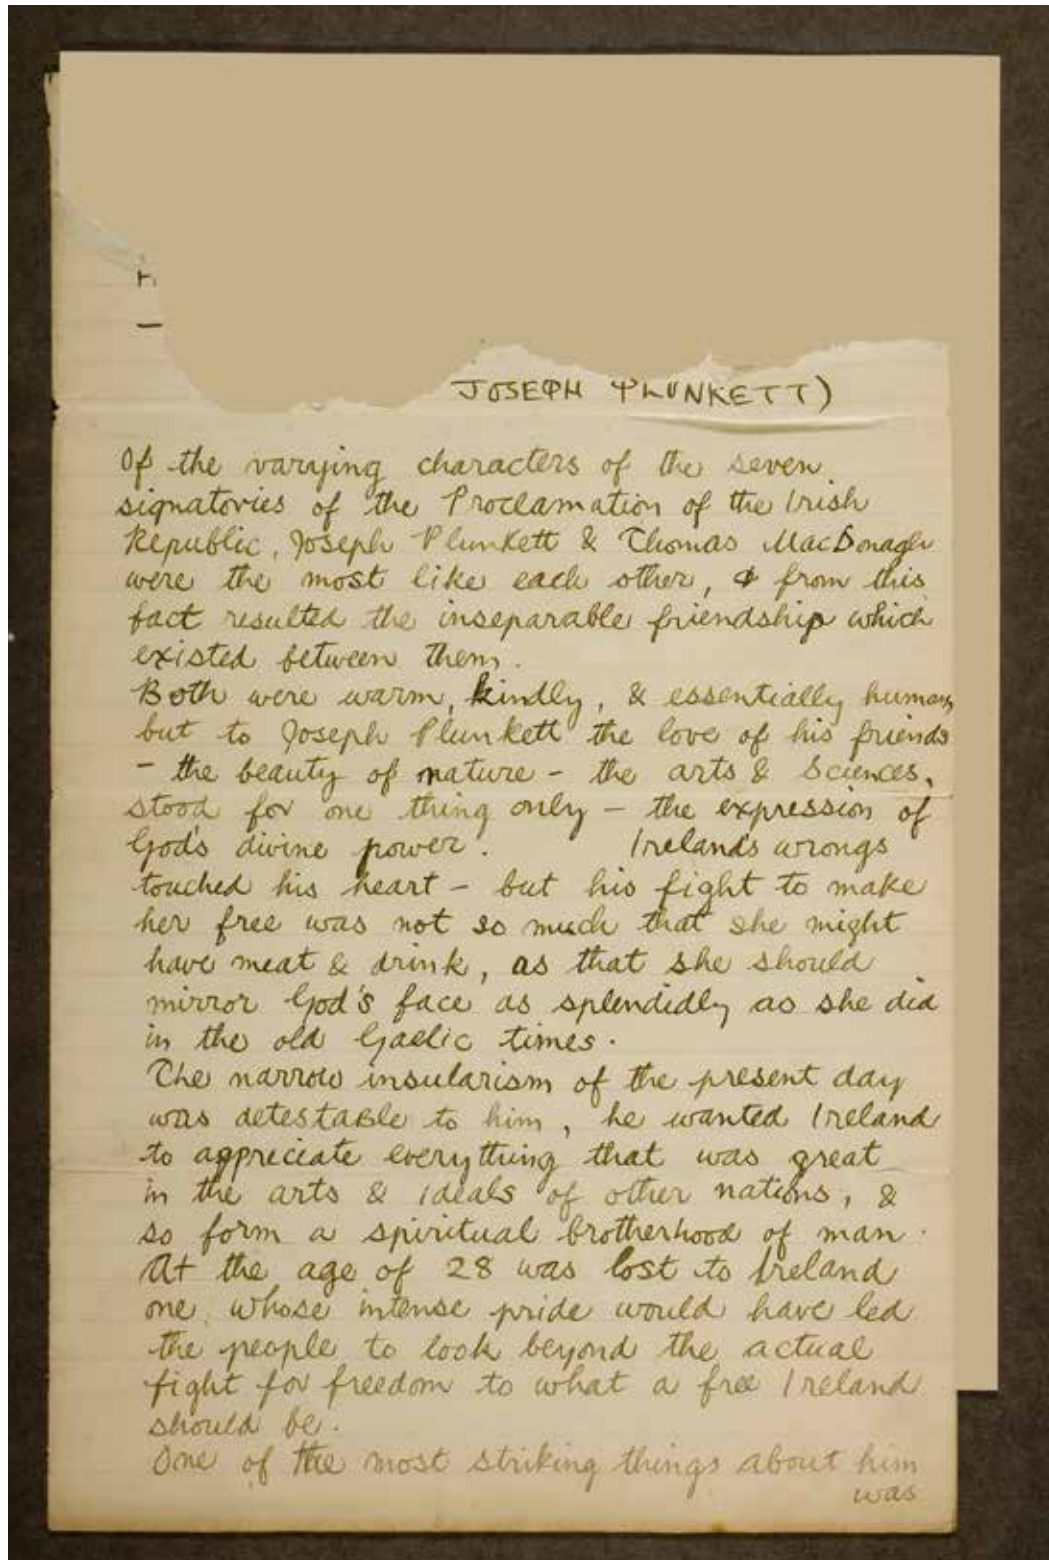 JOSEPH PLUNKETT)
Of the varying characters of the seven
signatories of the Proclamation of the Irish
Republic, Joseph Plunkett & Thomas MacDonagh
were the most like each other, & from this
fact resulted the inseparable friendship which
existed between them.
Both were warm, kindly, & essentially human,
but to Joseph Plunkett the love of his friends
- the beauty of nature - the arts & sciences,
stood for one thing only - the expression of
God's divine power. Ireland's wrongs
touched his heart - but his fight to make
her free was not so much that she might
have meat & drink, as that she should
mirror God's face as splendidly as she did
in the old Gaelic times.
The narrow insularism of the present day
was detestable to him, he wanted Ireland
to appreciate everything that was great
in the arts & ideals of other nations, &
so form a spiritual brotherhood of man.
At the age of 28 was lost to Ireland
one, whose intense pride would have led
the people to look beyond the actual
fight for freedom to what a free Ireland
should be.
One of the most striking things about him
was